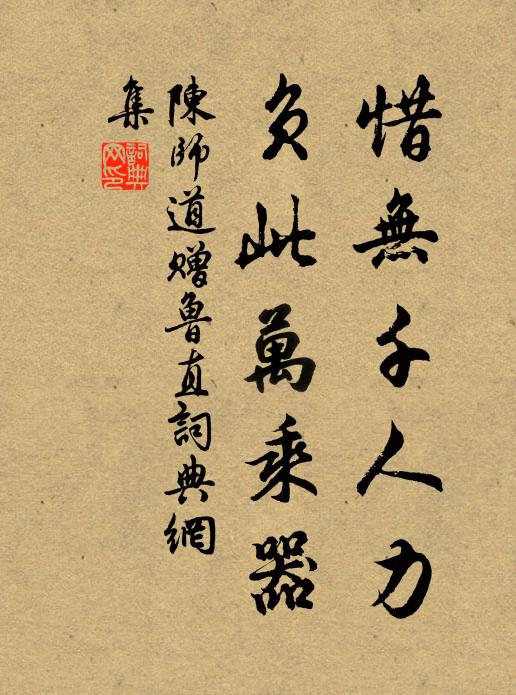 惜無千人力
負此萬乘器
陳師道贈魯直詞典網
集
詞典網印